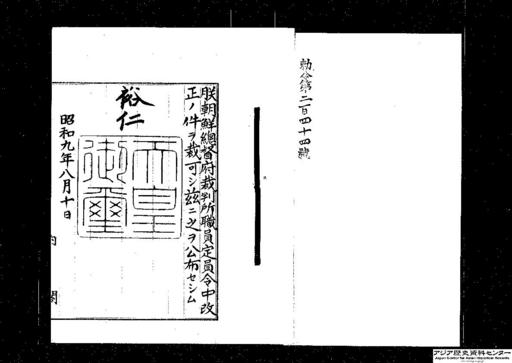 勅令第二百四十四號
朕朝鮮總督府裁判所職員定員令中改
正ノ件ヲ裁可シ茲ニ之ヲ公布セシム
裕仁
天皇御璽
昭和九年八月十日
内閣
アジア歴史資料センター
Japan Center for Asian Historical Records